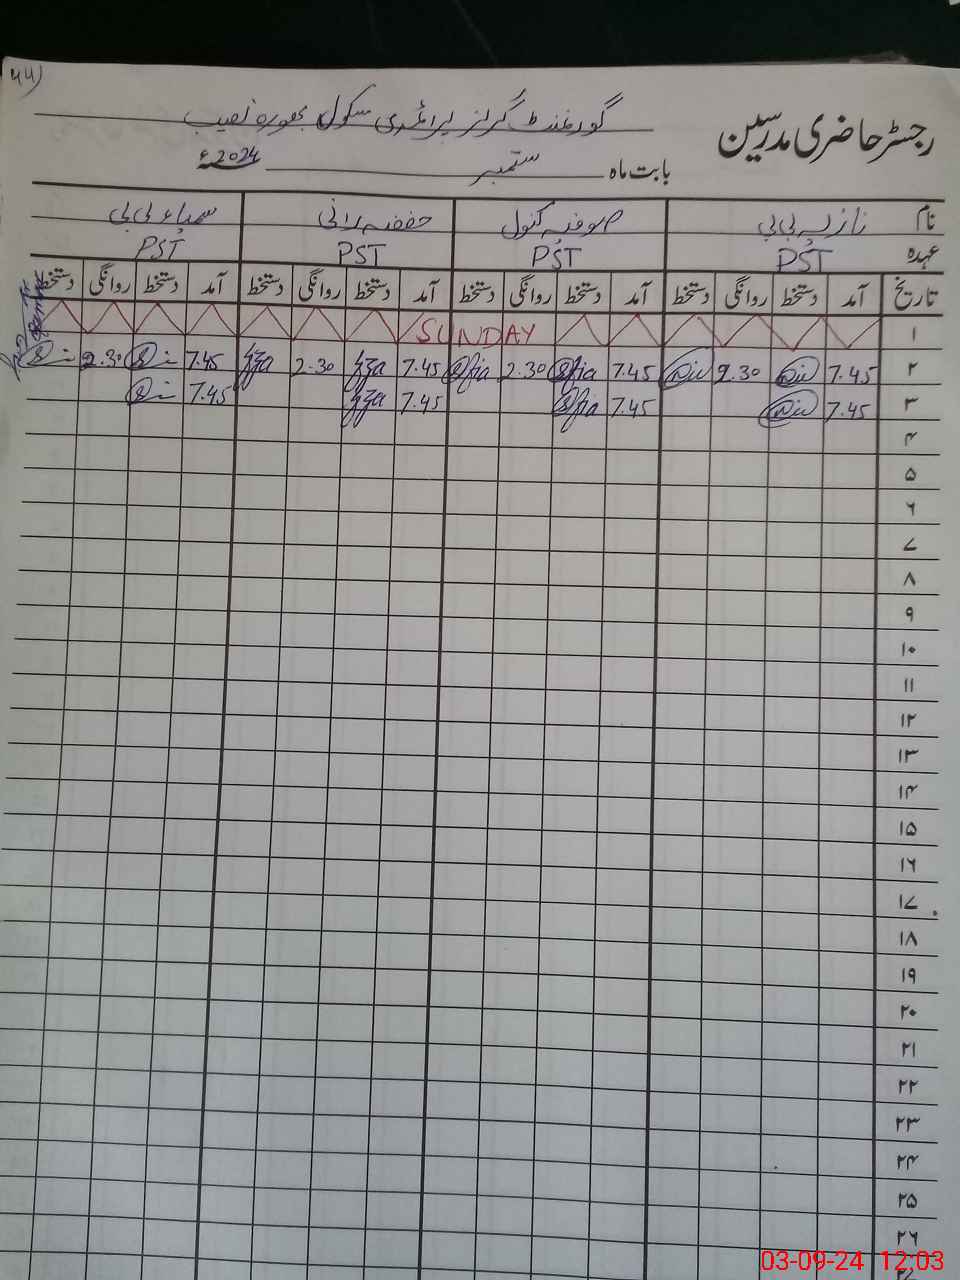 44)
رجسٹر حاضری مدرسین
گورنمنٹ گرلز پرائمری سکول
بابت ماہ ستمبر 2024ء
نام نازیہ بی بی صوفیہ کنول حفضہ رانی سماء بی بی
عہدہ PST PST PST PST
تاریخ آمد دستخط روانگی دستخط آمد دستخط روانگی دستخط آمد دستخط روانگی دستخط آمد دستخط روانگی دستخط
۱ SUNDAY
۲ 7.45 2.30 7.45 Sofia 2.30 Sofia 7.45 2.30 7.45 2.30
۳ 7.45 7.45 Sofia 7.45 7.45
۴
۵
۶
۷
۸
۹
۱۰
۱۱
۱۲
۱۳
۱۴
۱۵
۱۶
۱۷
۱۸
۱۹
۲۰
۲۱
۲۲
۲۳
۲۴
۲۵
۲۶
03-09-24 12:03